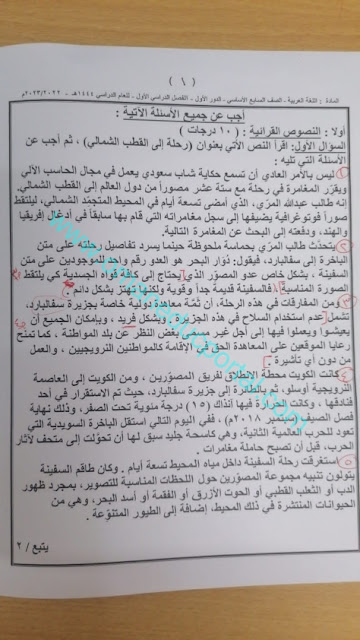 ( ١ )
المادة : اللغة العربية - الصف السابع الأساسي - الدور الأول - الفصل الدراسي الأول - للعام الدراسي ١٤٤٤هـ - ٢٠٢٢/٢٠٢٣م
أجب عن جميع الأسئلة الآتية :
أولا : النصوص القرائية : ( ١٠ درجات )
السؤال الأول: اقرأ النص الآتي بعنوان (رحلة إلى القطب الشمالي) ، ثم أجب عن
الأسئلة التي تليه :
١ ليس بالأمر العادي أن تسمع حكاية شاب سعودي يعمل في مجال الحاسب الآلي
ويقرّر المغامرة في رحلة مع ستة عشر مصوراً من دول العالم إلى القطب الشمالي.
إنه طالب عبدالله المرّي، الذي أمضى تسعة أيام في المحيط المتجمّد الشمالي، ليلتقط
صوراً فوتوغرافية يضيفها إلى سجل مغامراته التي قام بها سابقاً في أدغال إفريقيا
والهند، ودفعته إلى البحث عن المغامرة التالية.
٢ يتحدث طالب المرّي بحماسة ملحوظة حينما يسرد تفاصيل رحلة على متن
الباخرة إلى سفالبارد، فيقول: دُوار البحر هو العدو رقم واحد للموجودين على متن
السفينة ، بشكل خاص عدو المصوّر الذي يحتاج إلى كامل قواه الجسدية كي يلتقط
الصورة المناسبة، فالسفينة قديمة جداً وقوية ولكنها تهتز بشكل دائم.
٣ ومن المفارقات في هذه الرحلة، أن ثمّة معاهدة دولية خاصة بجزيرة سفالبارد،
تشمل عدم استخدام السلاح في هذه الجزيرة . وبشكل فريد ، وبإمكان الجميع أن
يعيشوا ويعملوا فيها إلى أجل غير مسمى بغض النظر عن بلد المواطنة ، كما تمنح
رعايا الموقعين على المعاهدة الحق في الإقامة كالمواطنين النرويجيين ، والعمل
من دون أي تأشيرة .
٤ كانت الكويت محطة الانطلاق لفريق المصوّرين ، ومن الكويت إلى العاصمة
النرويجية أوسلو ، ثم بالطائرة إلى جزيرة سفالبارد، حيث تم الاستقرار في أحد
فنادقها ، وكانت الحرارة فيها آنذاك (١٥) درجة مئوية تحت الصفر، وذلك نهاية
فصل الصيف (سبتمبر ٢٠١٨م) . ففي اليوم التالي استقل الباخرة السويدية التي
تعود للحرب العالمية الثانية، وهي كاسحة جليد سبق لها أن تحوّلت إلى متحف لآثار
الحرب، قبل أن تصبح حاملة مغامرات .
٥ استغرقت رحلة السفينة داخل مياه المحيط تسعة أيام . وكان طاقم السفينة
يتولون تنبيه مجموعة المصوّرين حول اللحظات المناسبة للتصوير، بمجرد ظهور
الدب أو الثعلب القطبي أو الحوت الأزرق أو الفقمة أو أسد البحر، وهي من
الحيوانات المنتشرة في ذلك المحيط، إضافة إلى الطيور المتنوّعة .
يتبع / ٢